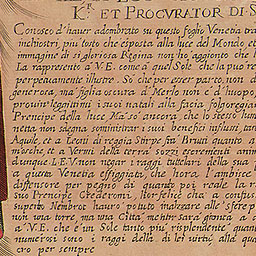 K.r ET PROCVRATOR DI S
Conosco d'hauer adombrato su questo foglio Venetia tra
inchiostri, piu tosto che esposta alla luce del Mondo, et
immagine di si gloriosa Regina non ho aggionto che l
La rapprento à V.E. come à quel Sole che la può re
perpetuamente illustre. Sò che per esser parto, non d
generosa, mà figlia oscura di Merlo non è d'huopo
prouin legitimi i suoi natali alla faccia folgoregian
Prencipe della luce Mà sò ancora, che lo stesso lum
netta non sdegna somministrar i suoi benefici influssi tan
Aquile, et a Leoni di regia Stirpe frà Bruti quanto a
mosche, et a Vermi della terra sozzi escrementi anim
dunque L'E.V. non negar i raggi tuttelari della sua
a questa Venetia effigiata, che hora l'ambisce
diffensore per pegno di quanto poi reale la ri
suo Prencipe Ch'ederomi, Hor felice che à confus
superbi Nembrot hauro potuto inalzare alle sfere
non una torre, ma una Città mentre sarà gionta à
a V.E. che è un Sole tanto più risplendente quant
numerosi sono i raggi della di lei virtù alla qua
cro per sempre